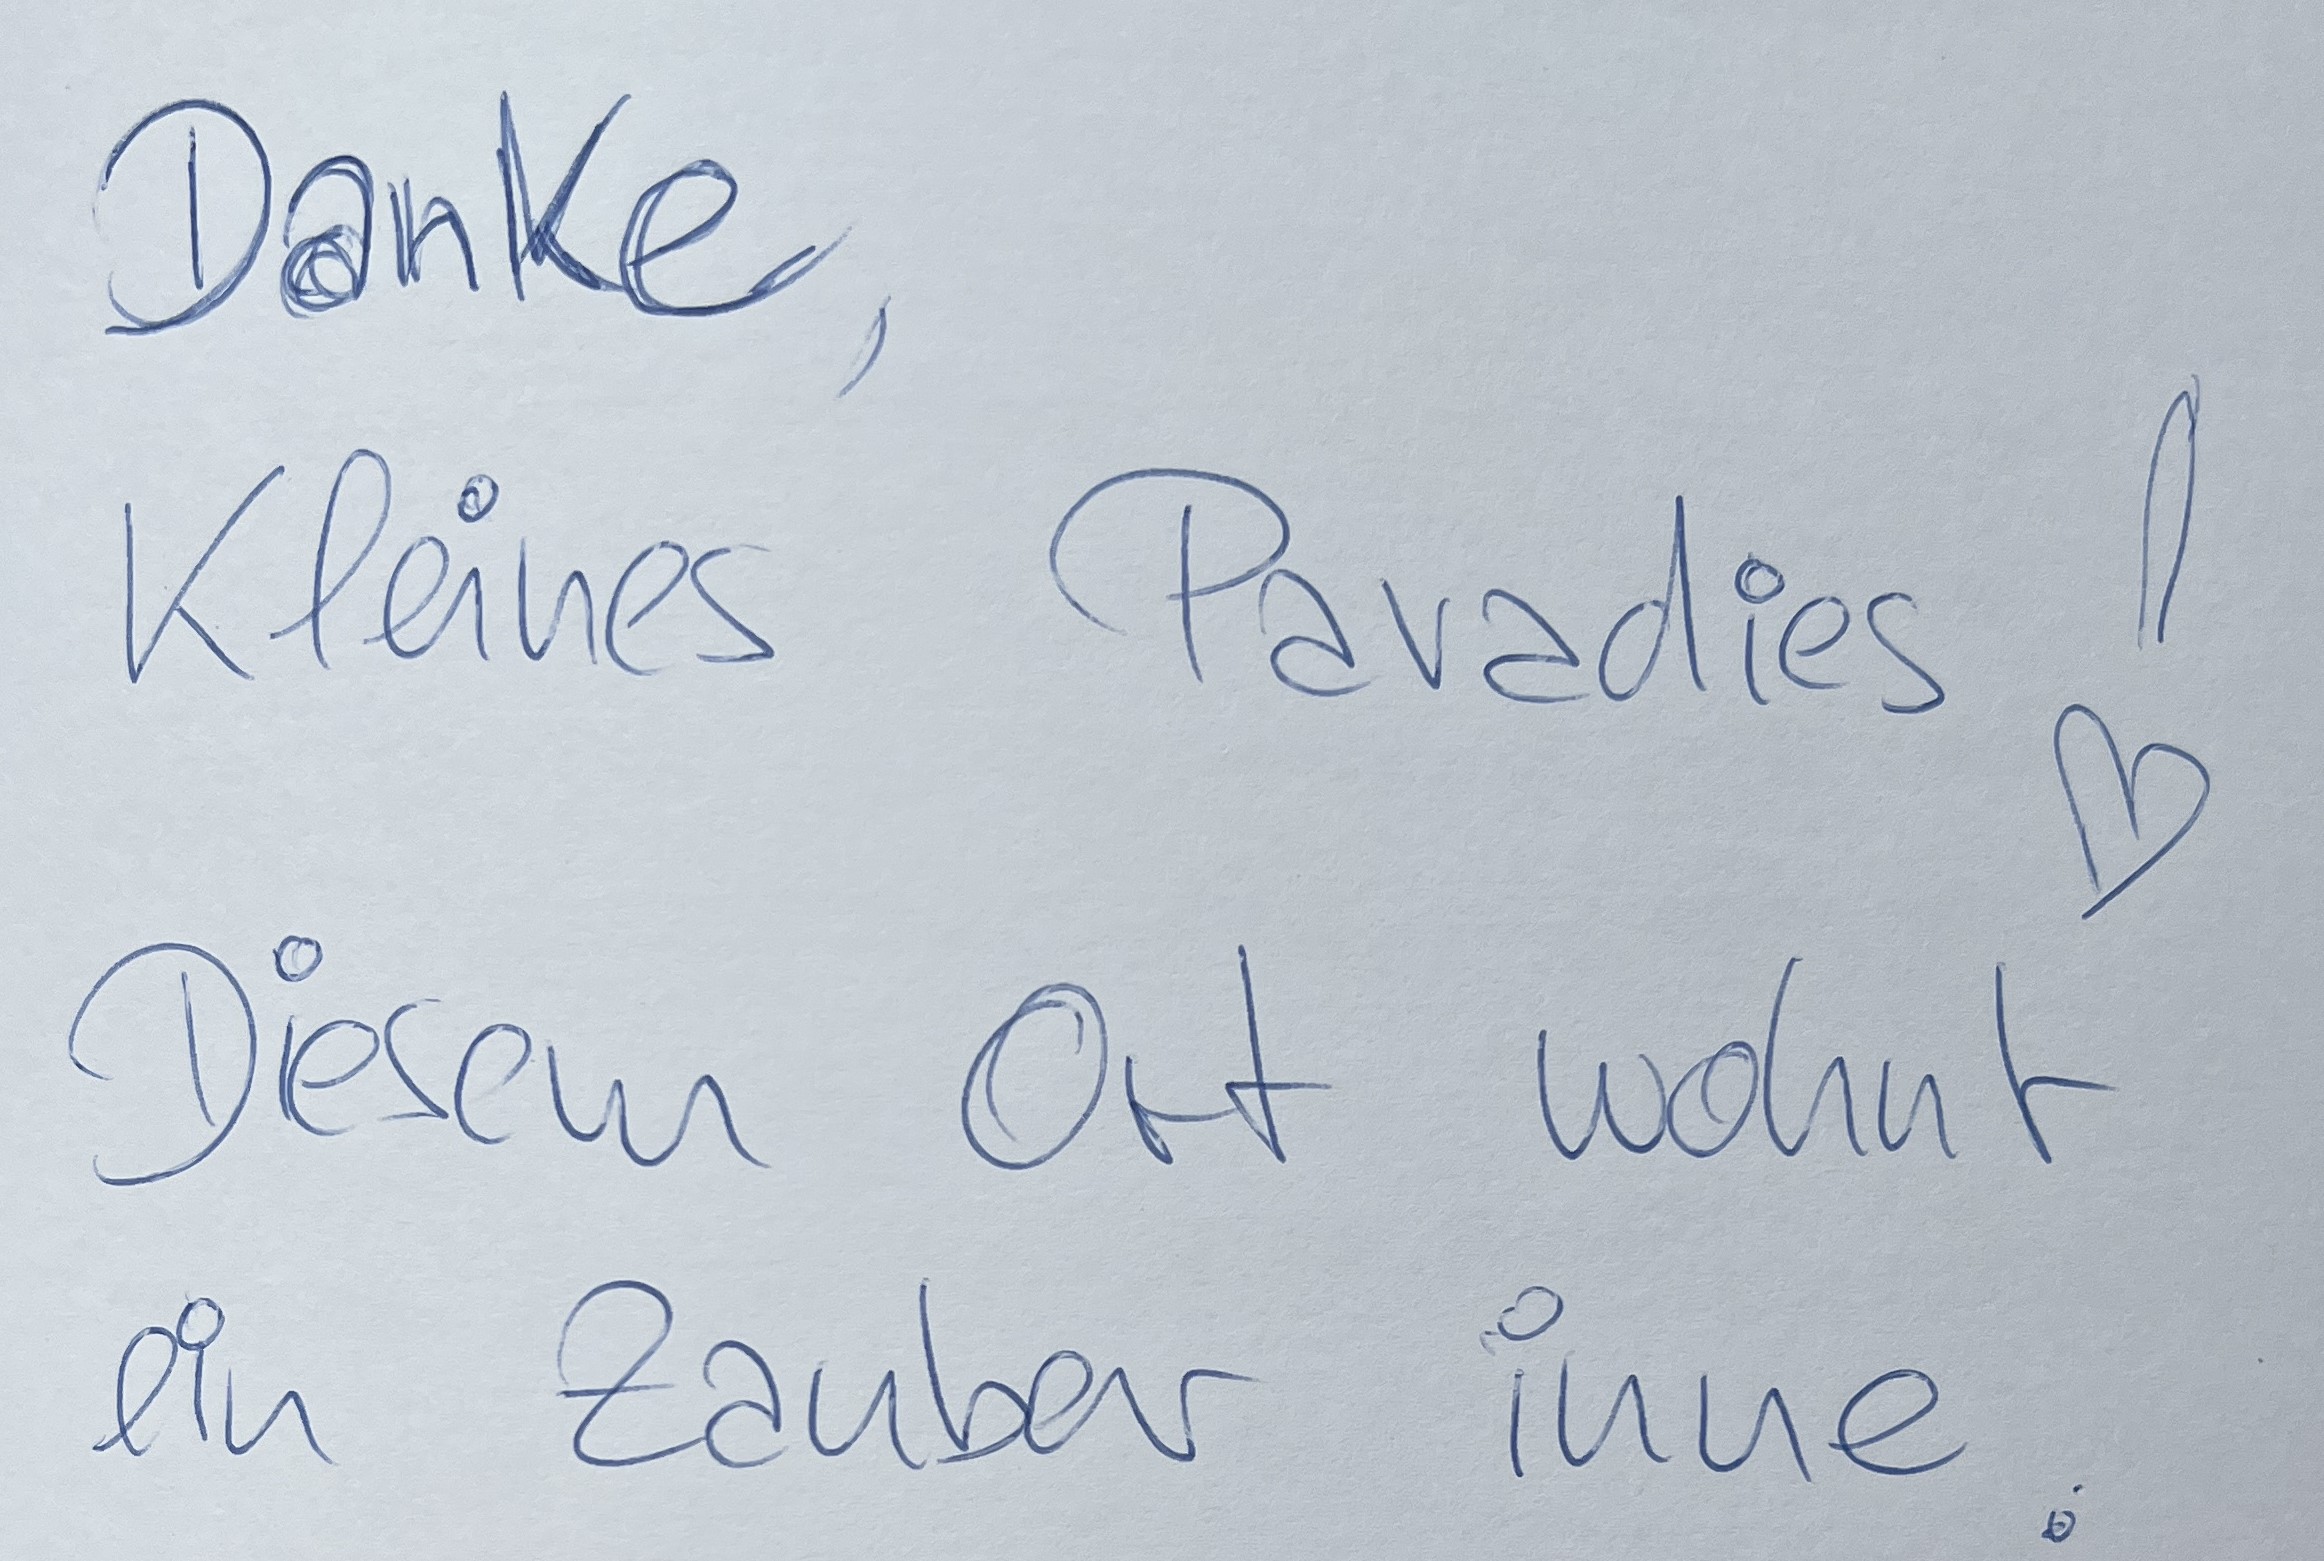 Danke,
Kleines Paradies!
Diesem Ort wohnt
ein Zauber inne.